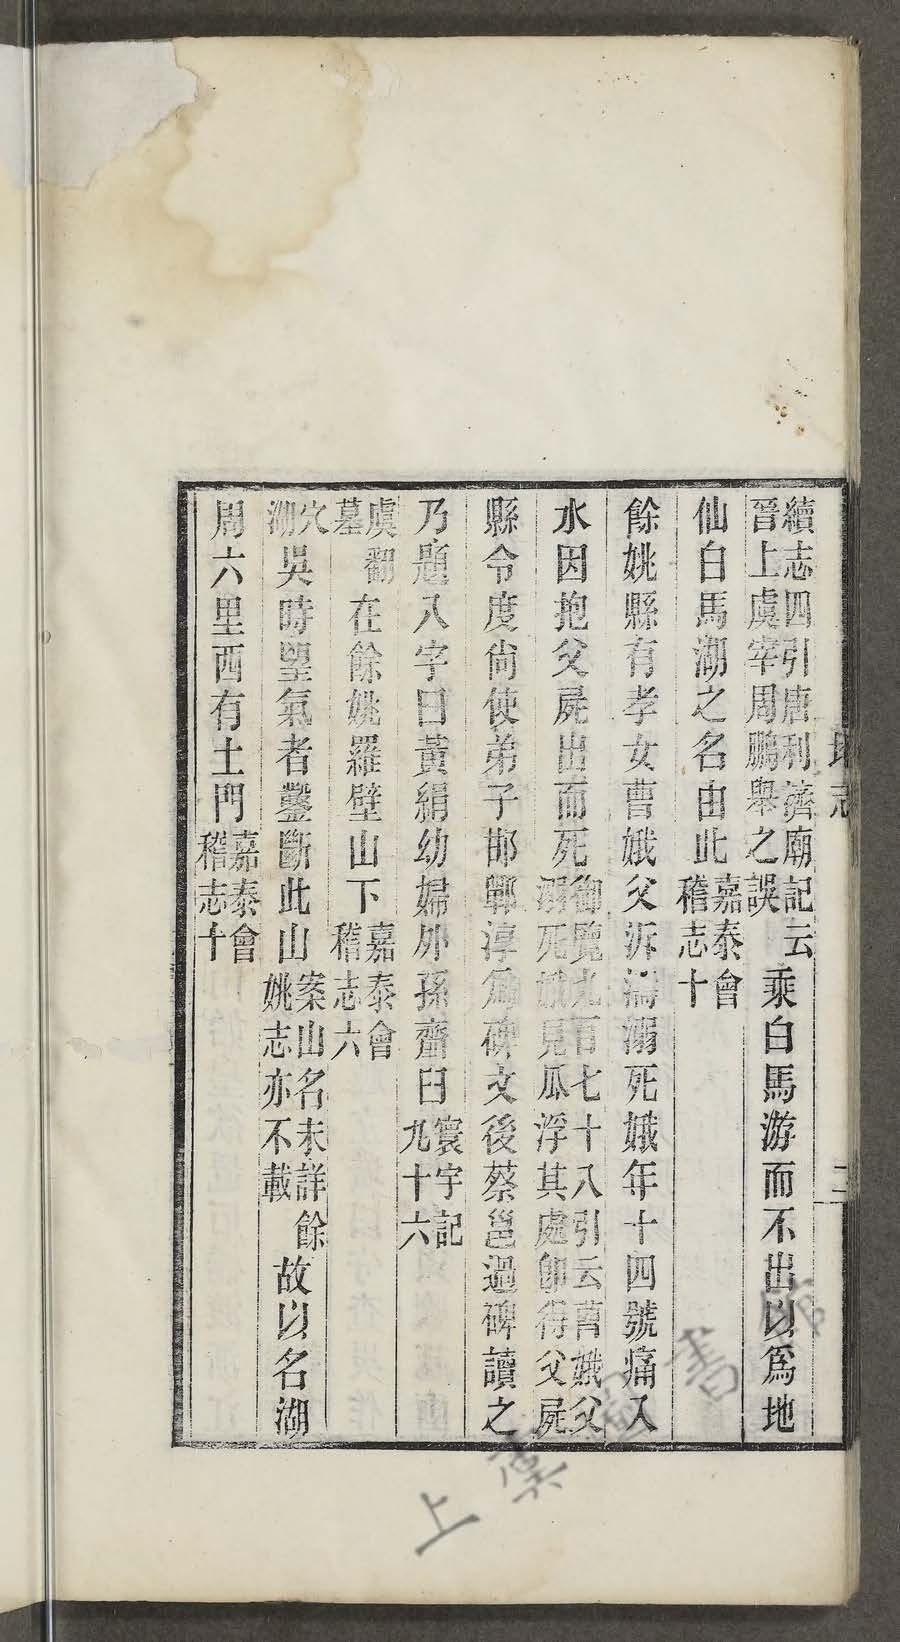 續志四引唐利濟廟記云
晉上虞宰周鵬舉之誤
乘白馬游而不出以爲地
仙白馬湖之名由此
嘉泰會
稽志十
餘姚縣有孝女曹娥父泝濤溺死娥年十四號痛入
水因抱父屍出而死
御覽九百七十八引云曹娥父
溺死娥見瓜浮其處卽得父屍
縣令度尙使弟子邯鄲淳爲碑文後蔡邕過碑讀之
乃題八字曰黃絹幼婦外孫齏臼
寰宇記
九十六
虞翻
墓
在餘姚羅壁山下
嘉泰會
稽志六
穴
湖
吳時望氣者鑿斷此山
案山名未詳餘
姚志亦不載
故以名湖
周六里西有土門
嘉泰會
稽志十
地志
二
上虞
書